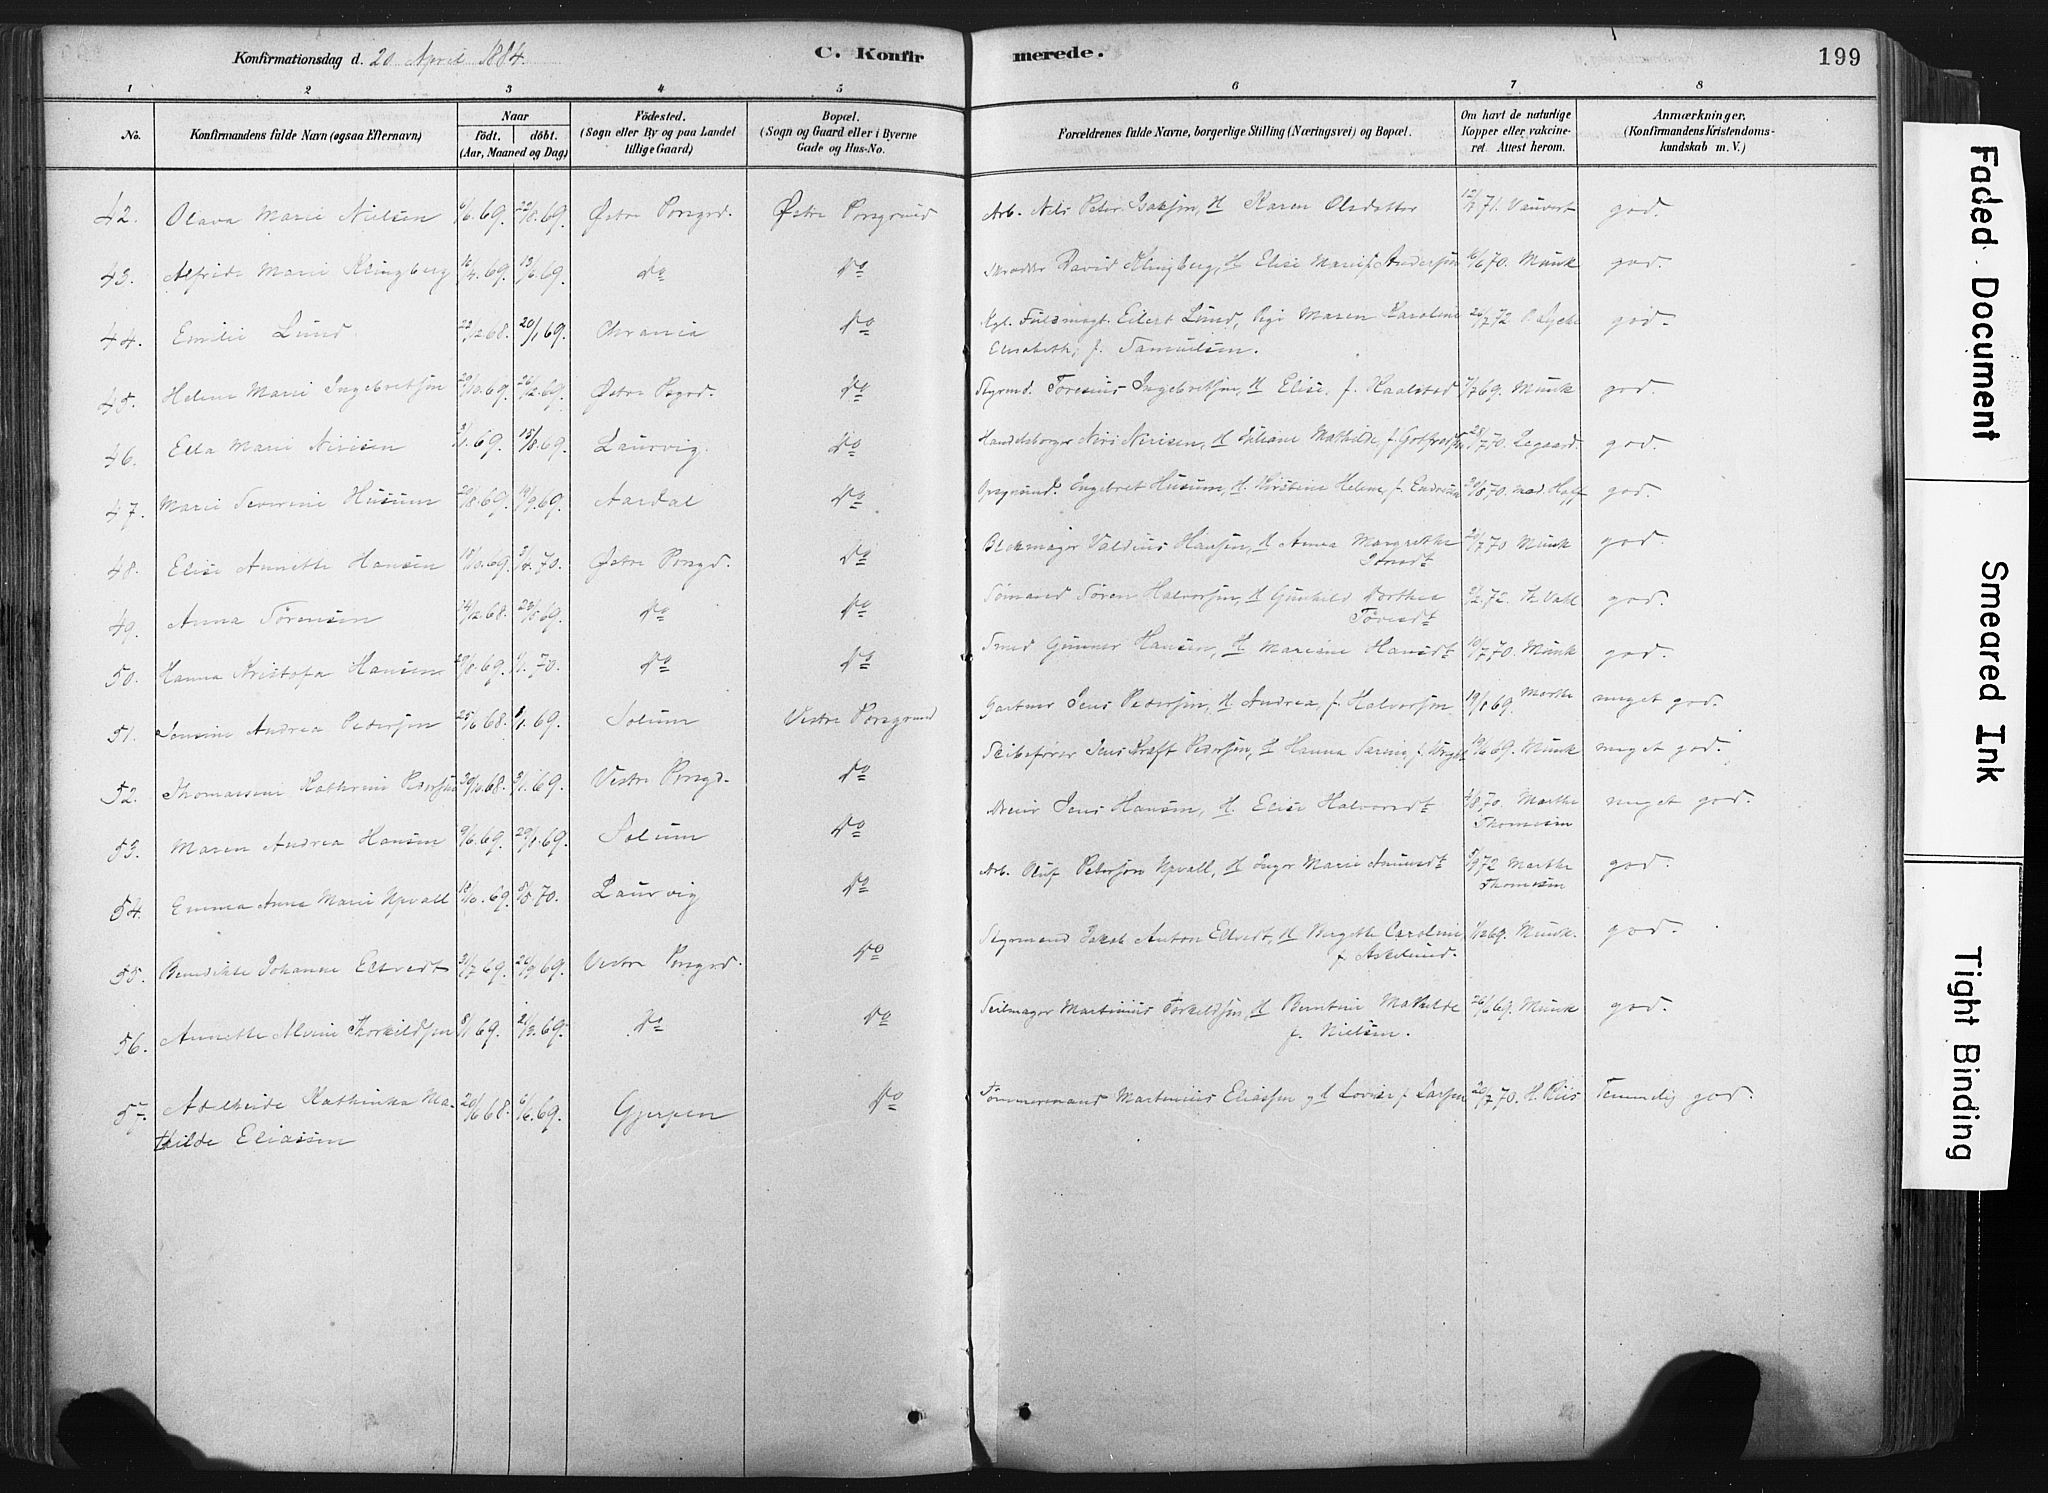 Konfirmationsdag d. 20 April 1884. C. Konfirmerede. 199
1 2 3 4 5 6 7 8
No. Konfirmandens fulde Navn (ogsaa Efternavn) Naar födt. döbt. (Aar, Maaned og Dag) Födested. (Sogn eller By og paa Landet tillige Gaard) Bopæl. (Sogn og Gaard eller i Byerne Gade og Hus-No. Forældrenes fulde Navne, borgerlige Stilling (Næringsvei) og Bopæl. Om havt de naturlige Kopper eller vakcineret. Attest herom. Anmærkninger. (Konfirmandens Kristendomskundskab m. V.)
42. Olava Marie Nielsen 6/6.69. 22/8.69. Østre Porsgrd. Østre Porsgrund Arb. Nils Peter Isaksen, H Karen Olsdatter 71. Vauvert god.
43. Alfride Marie Klingberg 16/4.69. 13/6.69. Do Do Skrædder David Klingberg, H Elise Marie Andersen 16/6.70. Munk god.
44. Emilie Lund 22/12.68. 20/1.69. Chrania Do Kgl. Fuldmagt. Eilert Lund, Pige Maren Karoline 26/7.72 god.
Elisabeth, f. Samuelsen.
45. Helene Marie Ingebretsen 20/10.69. 26/12.69. Østre Psgrd. Do Styrmd. Toresius Ingebretsen, H Elise, f. Kaalstad 69. Munk god.
46. Ella Marie Nirisen 69. 15/8.69. Laurvig. Do Handelsborger Niri Nirisen, H Juliane Mathilde, f. Gotfredsen 28/7.70. god.
47. Marie Severine Husum 20/8.69. 19/9.69. Aardal Do Opsynsmd. Ingebret Husum, H. Kirstine Helene, f. Endresen 20/8.70. med. Hoff god.
48. Elise Annette Hansen 18/10.69. 3/4.70. Østre Porsgd. Do Blokmager Valdius Hansen, H Anna Margrethe 70 Munk god.
49. Anna Sørensen 14/12.68. 69. Do Do Sømand Søren Halvorsen, H Gunhild Dorthea 72. Th. Vahl god.
50. Hanna Kristofa Hansen 29/8.69. 70. Do Do Smed Gunner Hansen, H Mariane Hansdt 10/7.70. Munk god.
51. Jensine Andrea Pedersen 25/6.68. 69. Solum Vestre Porsgrund Gartner Jens Pedersen, H Andrea, f. Halvorsen 19/1.69. Marthe meget god.
52. Thomassine Kathrine Pedersen 30/10.68. 3/1.69. Vestre Porsgd. Do Skibsfører Jens Kraft Pedersen, H Hanna Sarine, 69. Munk meget god.
53. Maren Andrea Hansen 9/6.69. 29/8.69. Solum Do Jens Hansen, H. Elise Halvorsdt 70. Marthe meget god.
Thomesen
54. Emma Anna Marie Upvall 18/10.69. 70. Laurvig Do Arb. Oluf Petersen Upvall, H Inger Marie Amundt 72 Marthe god.
Thomesen
55. Benedikte Johanne Eltvedt 31/7.69. 26/9.69. Vestre Porsgrd. Do Styrmand Jakob Anton Eltvedt, H Birgitte Caroline, 69. Munk. god.
f. Askelund.
56. Annette Alvine Thorkildsen 8/1.69. 21/3.69. Do Do Seilmager Martinius Torkildsen, H Berntine Mathilde 26/6.69. Munk god.
f. Nielsen.
57. Adelheide Kathinka Ma- 20/6.68. 6/6.69. Gjerpen Do Tømmermand Martinius Eliassen og H Lovise f. Larsen 20/7.70. H. Riis Temmelig god.
thilde Eliassen
Faded Document
Smeared Ink
Tight Binding